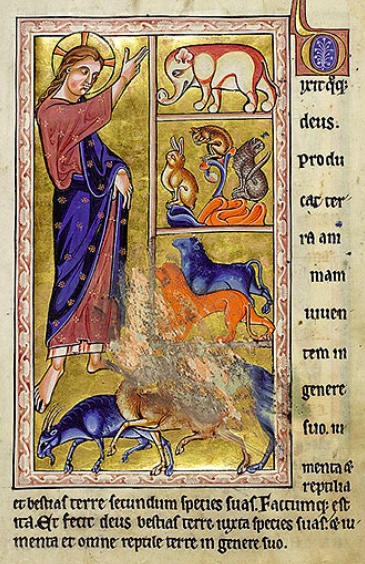 Dixit q̄q;
deus.
Produ
cat ter-
ra ani
mam
uiuen
tem in
genere
suo. iu
menta &
reptilia
et bestias terre secundum species suas. Factumq; est
ita. Et fecit deus bestias terre iuxta species suas. & iu-
menta et omne reptile terre in genere suo.